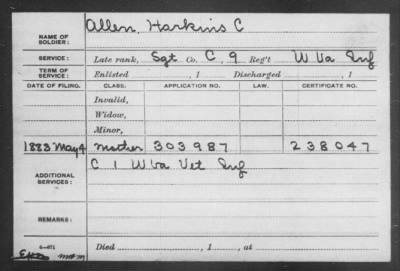 NAME OF SOLDIER: Allen, Harkins C
SERVICE: Late rank, Sgt Co. C, 9 Reg't W Va Inf
TERM OF SERVICE: Enlisted , 1 Discharged , 1
DATE OF FILING. CLASS. APPLICATION NO. LAW. CERTIFICATE NO.
Invalid,
Widow,
Minor,
1883 May 4 Mother 303987 238047
ADDITIONAL SERVICES: C 1 W Va Vet Inf
REMARKS:
Died , 1 , at